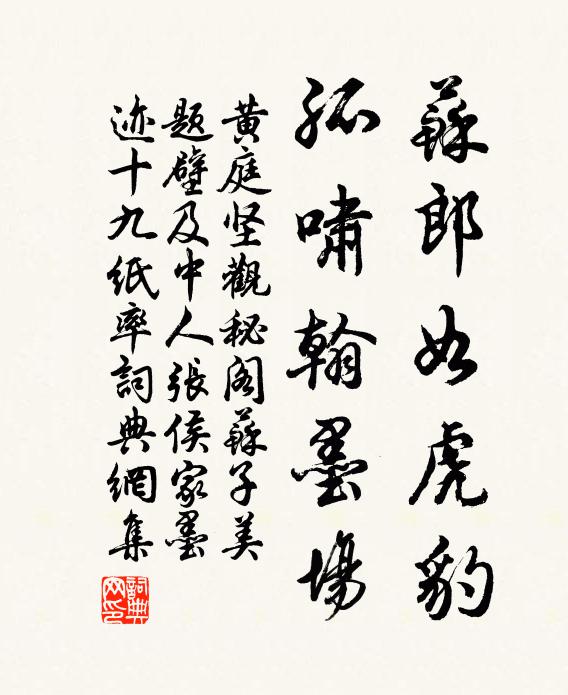 蘇郎如虎豹
孤嘯翰墨場
黄庭坚觀秘阁蘇子美
题壁及中人張侯家墨
迹十九纸率詞典網集
詞典網印